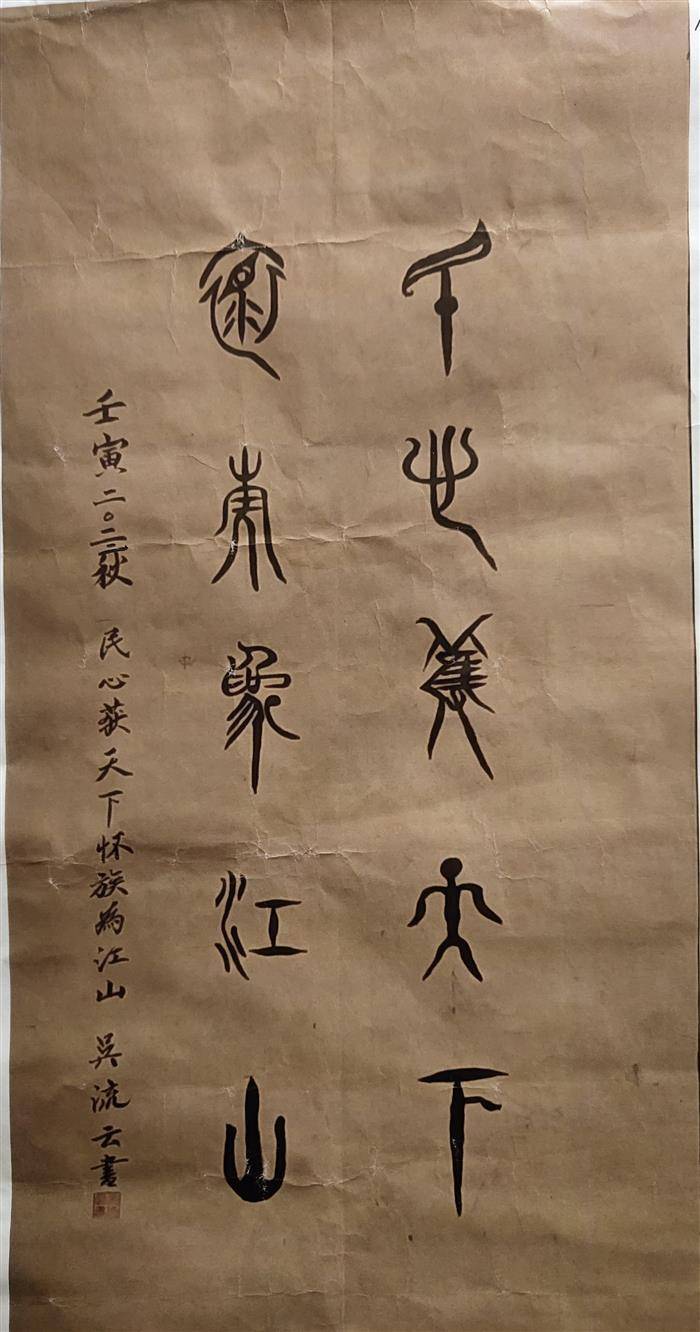 民心獲天下
懷族為江山
壬寅二〇二二秋 民心获天下怀族為江山 吳流云書